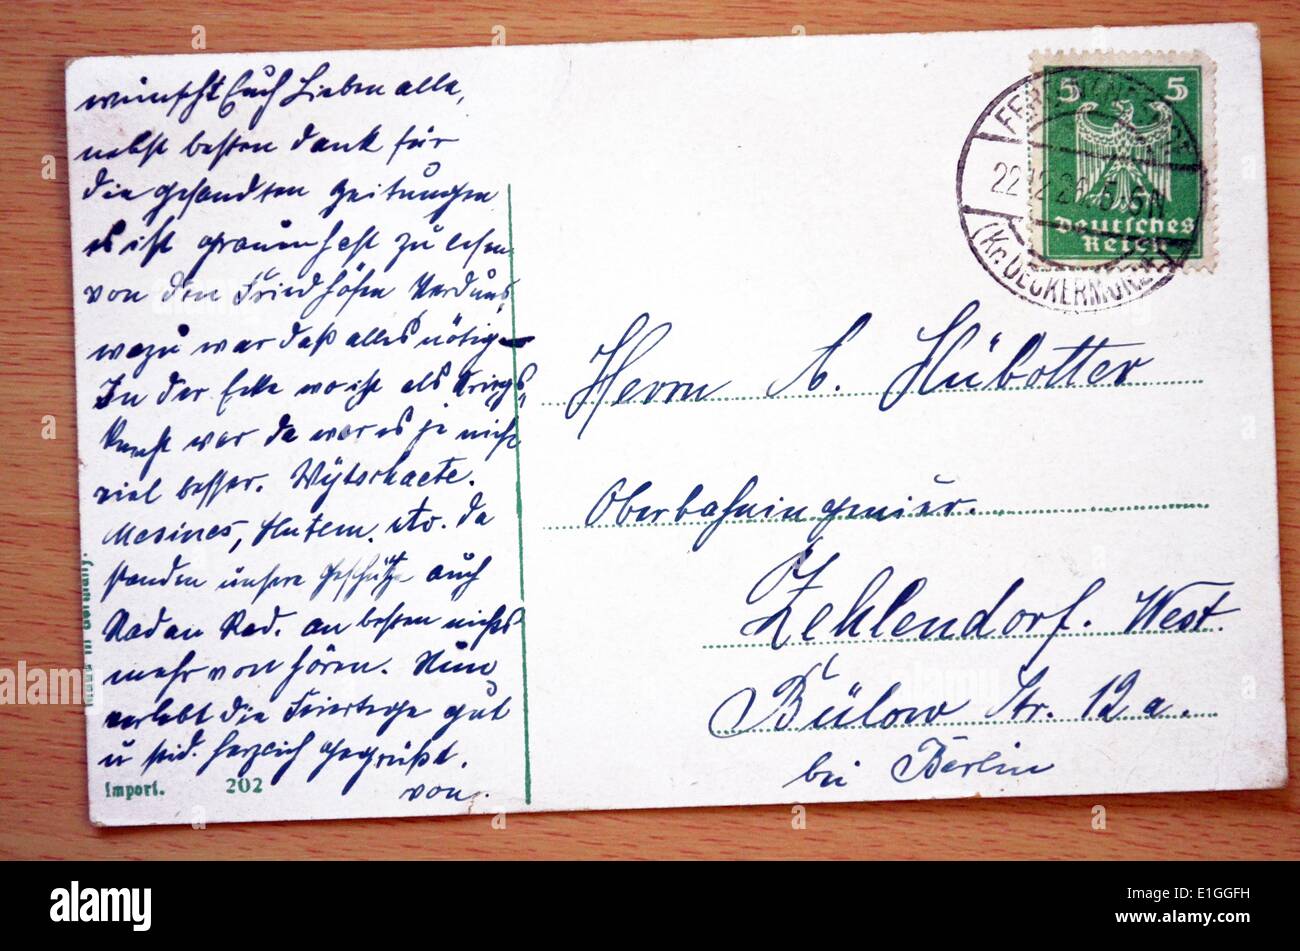 wünscht Euch Lieben alle,
nebst besten Dank für
die gesandten Zeitungen
es ist grauenhaft zu lesen
von den Friedhöfen Verduns,
wozu war daß alles nötig
In der Ecke wo ist als Kriegs-
knecht war da war es ja nicht
viel besser. Wÿtschaete.
Mesines, Hutem. etc. da
standen unsere Geschütze auch
Rad an Rad. am besten nichts
mehr von hören. Nun
verlebt die Feiertage gut
u seid. herzlich gegrüßt.
von.
Made in Germany.
Import. 202
5 5
Deutsches
Reich
22.12.26. 5-6N
(Kr. UECKERMÜNDE)
Herrn A. Hübotter
Oberbahningenieur.
Zehlendorf. West.
Bülow Str. 12 a.
bei Berlin
alamy
E1GGFH
www.alamy.com